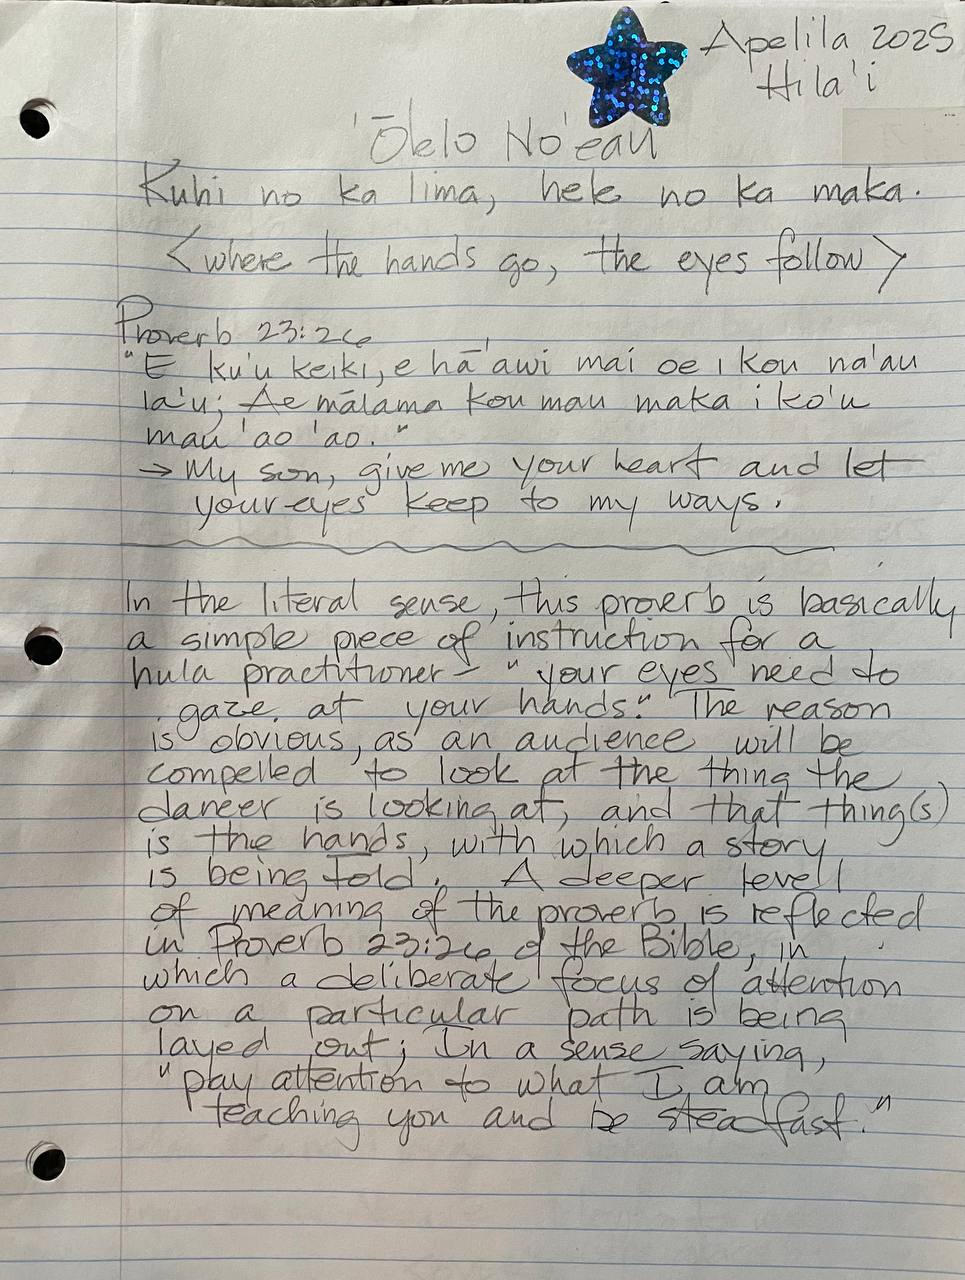 Apelila 2025
Hila'i
'Ōlelo No'eau
Kuhi no ka lima, hele no ka maka.
<where the hands go, the eyes follow>
Proverb 23:26
"E ku'u keiki, e hā'awi mai oe i kou na'au
la'u; Ae mālama kou mau maka i ko'u
mau 'ao 'ao."
→ My son, give me your heart and let
your eyes keep to my ways.
In the literal sense, this proverb is basically
a simple piece of instruction for a
hula practitioner - "your eyes need to
gaze at your hands." The reason
is obvious, as an audience will be
compelled to look at the thing the
dancer is looking at, and that thing(s)
is the hands, with which a story
is being told. A deeper level
of meaning of the proverb is reflected
in Proverb 23:26 of the Bible, in
which a deliberate focus of attention
on a particular path is being
layed out; In a sense saying,
"pay attention to what I am
teaching you and be steadfast."